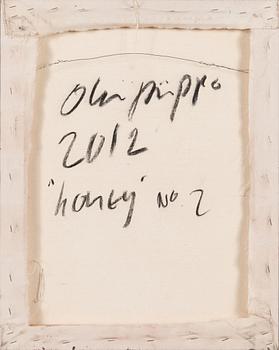 Olli piippo
2012
'honey' No 2